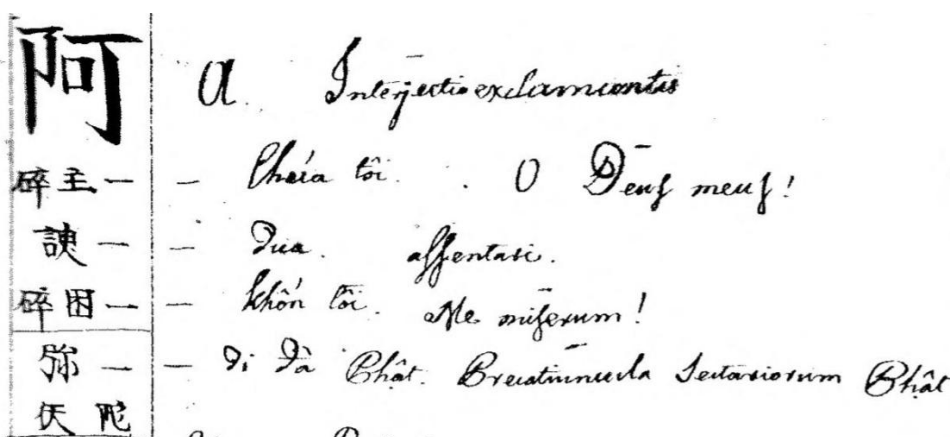 阿 A. Interjectio exclamantis
碎主一 – Chúa tôi. O Deus meus!
諛一 – dua. assentari.
碎困一 – khốn tôi. Me miserum!
弥一 – di đà Phật. Precatiuncula sectariorum Phật
仸陀